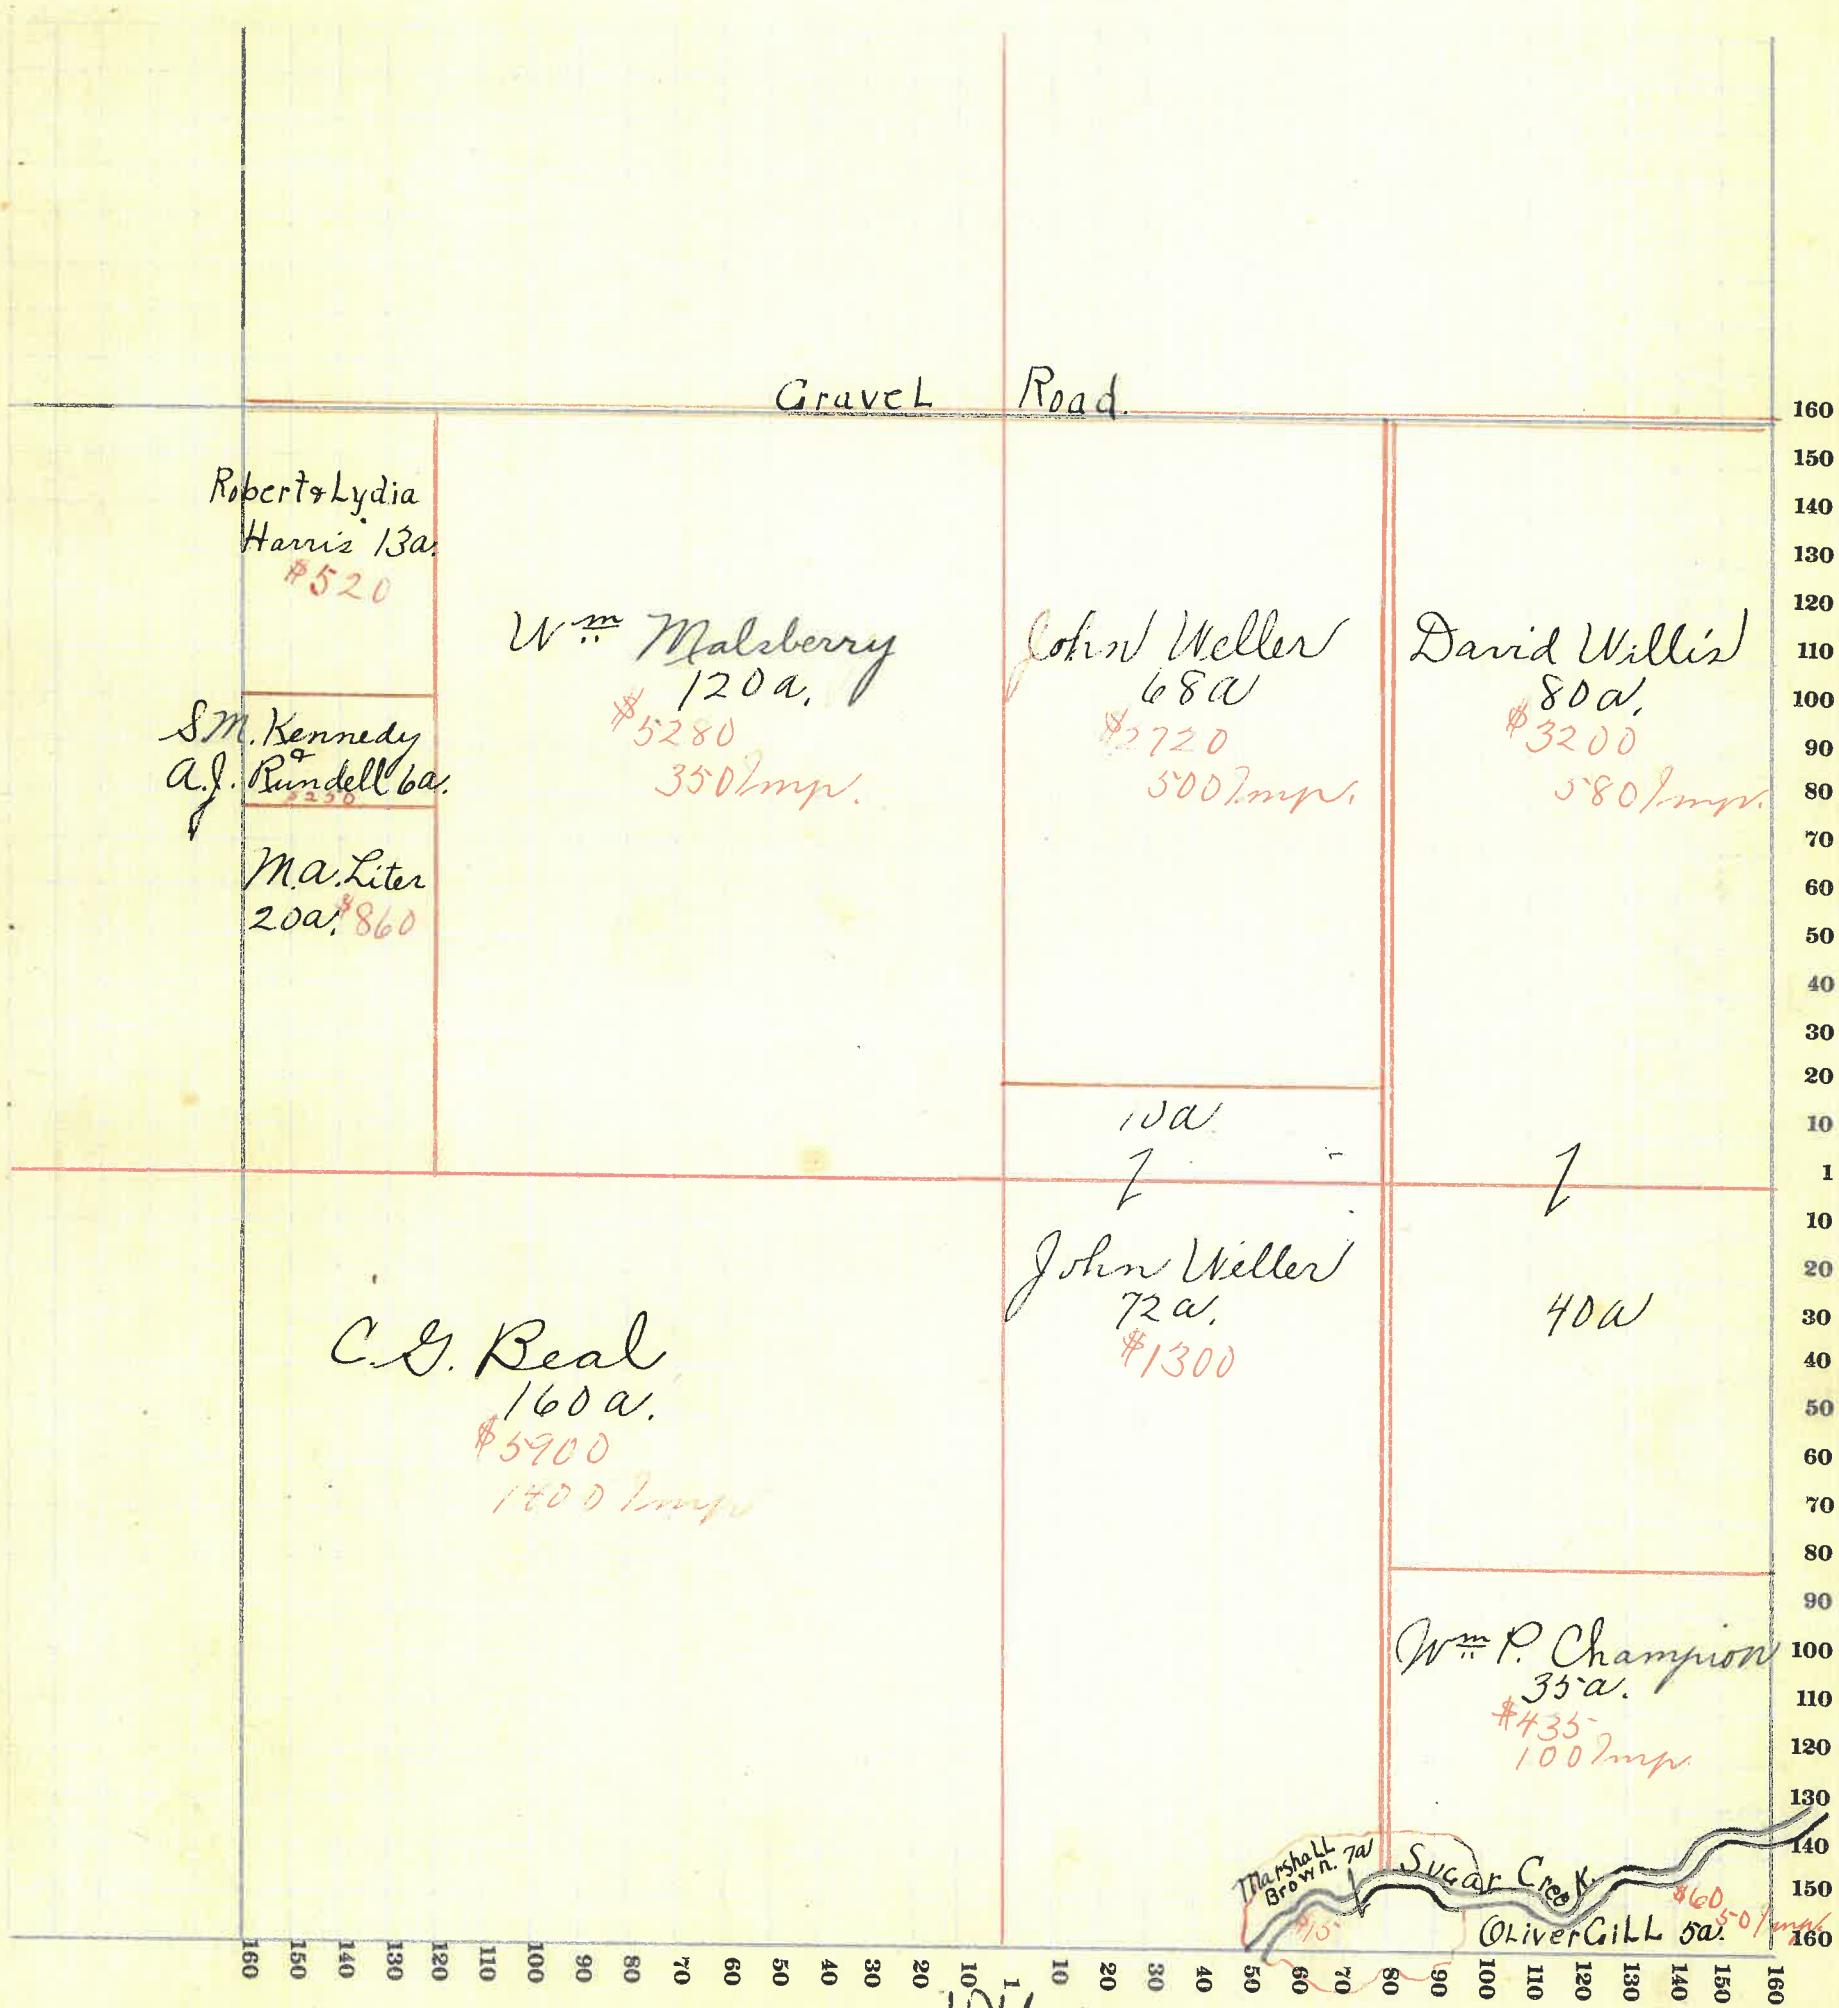 Gravel Road.
Robert & Lydia
Harris 13a.
$520
S.M. Kennedy
&
A.J. Rundell 6a.
M.A. Liter
20a. $860
Wm Malsberry
120a.
$5280
350 Imp.
John Weller
68a
$2720
500 Imp.
David Willis
80a.
$3200
580 Imp.
10a
John Weller
72a.
$1300
40a
C.G. Beal
160a.
$5900
Imp
Wm P. Champion
35a.
$435
100 Imp.
Marshall
Brown. 7a
$15
Sugar Creek
$60
50 Imp.
Oliver Gill 5a.
160
150
140
130
120
110
100
90
80
70
60
50
40
30
20
10
1
10
20
30
40
50
60
70
80
90
100
110
120
130
140
150
160
160 150 140 130 120 110 100 90 80 70 60 50 40 30 20 10 1 10 20 30 40 50 60 70 80 90 100 110 120 130 140 150 160